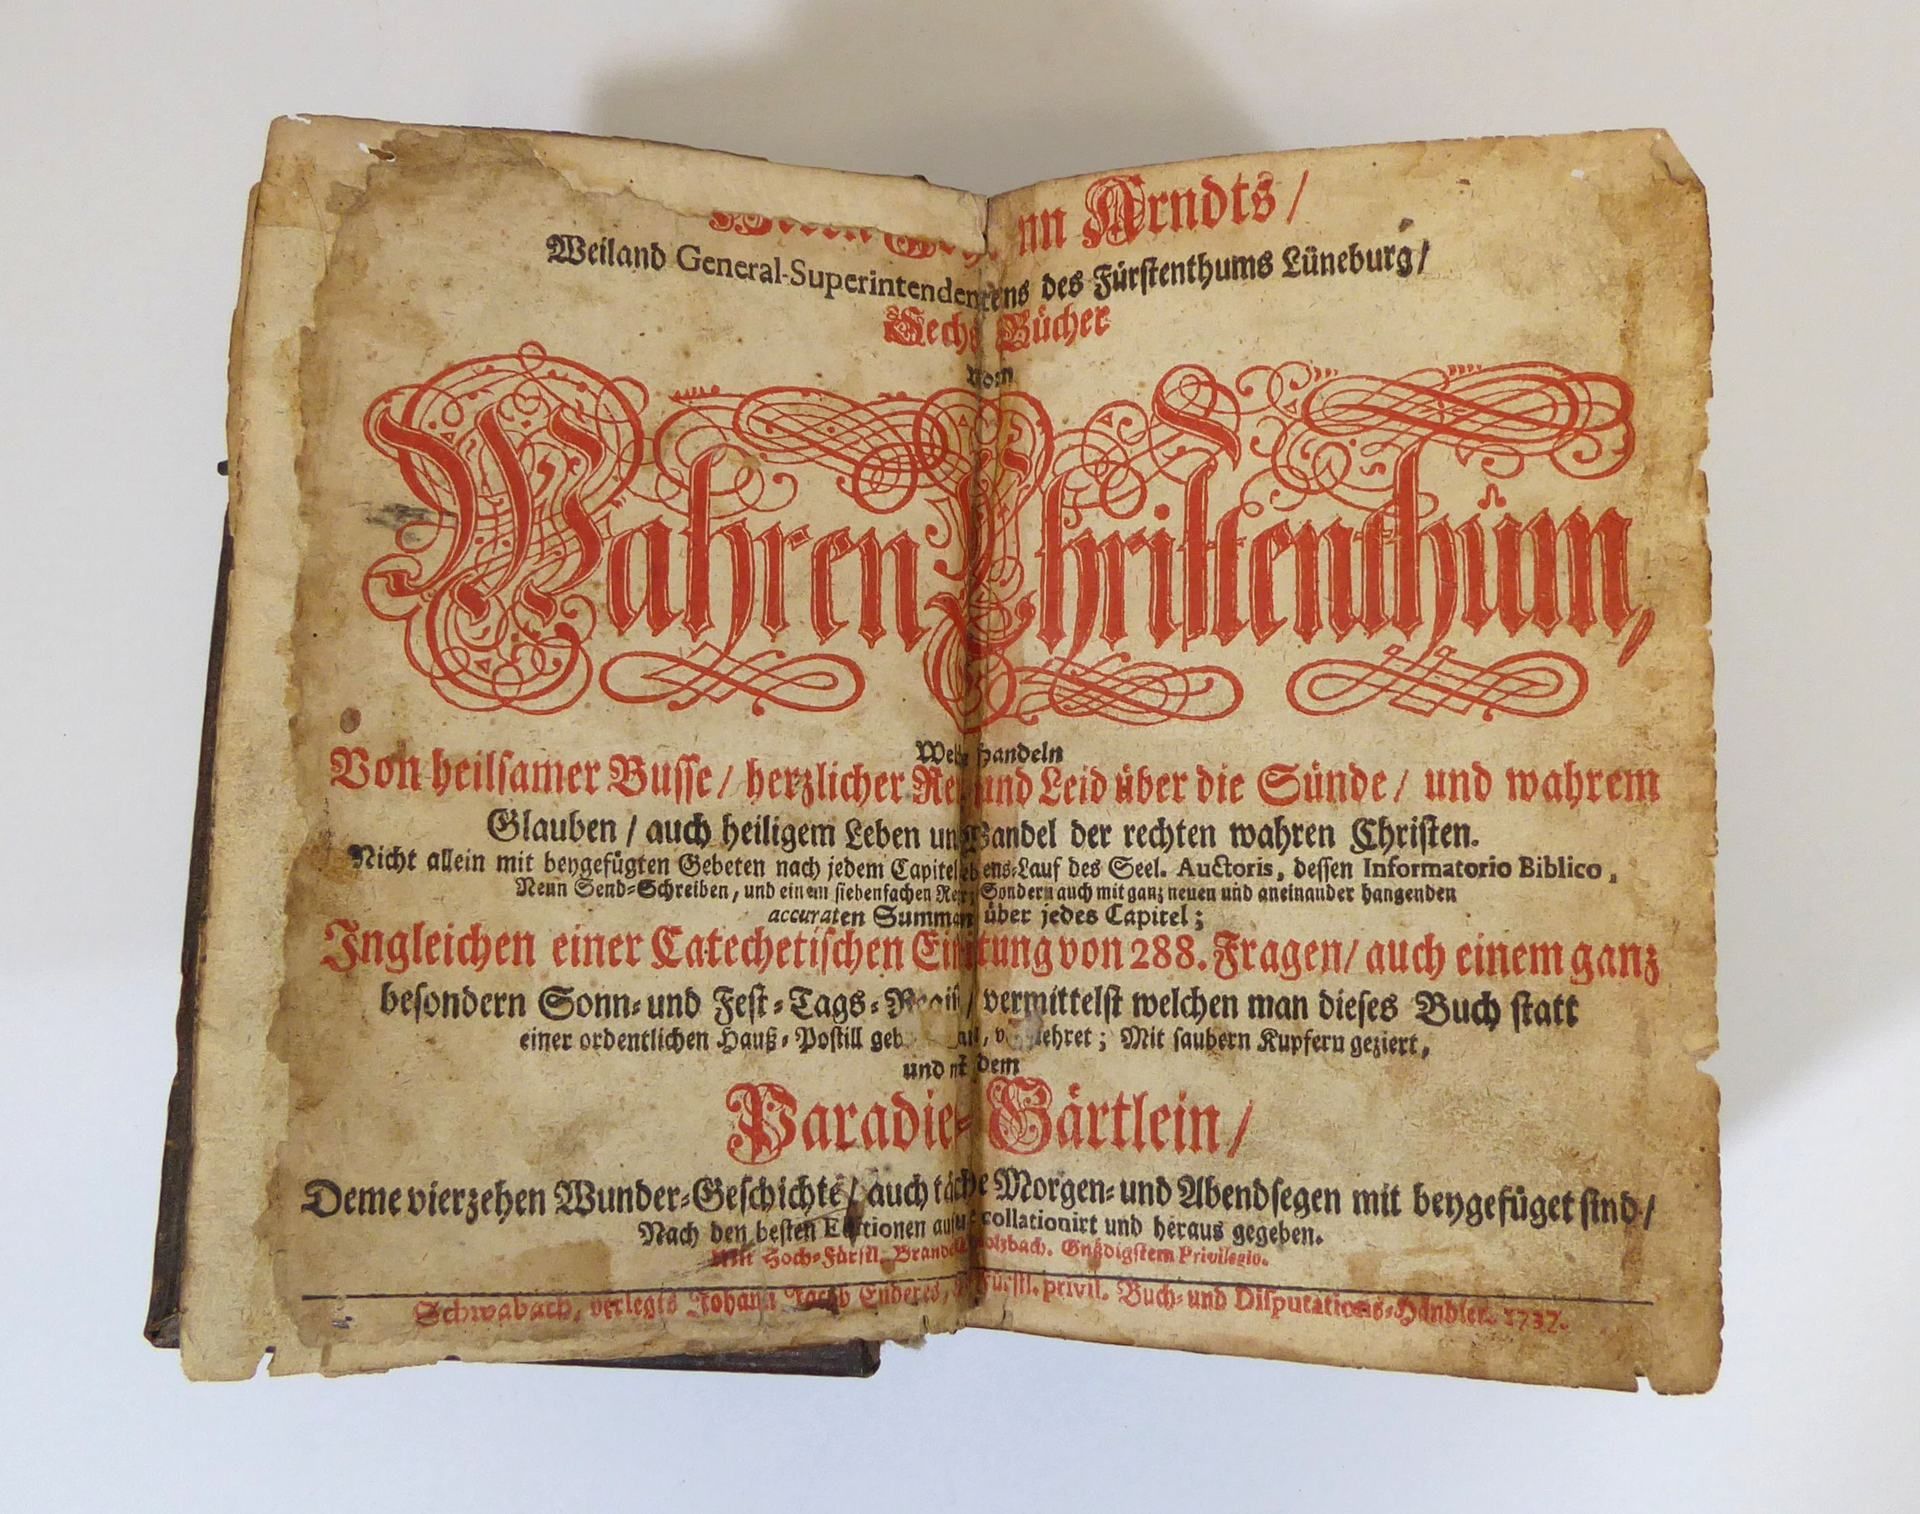 nn Arndts /
Weiland General-Superintendentens des Fürstenthums Lüneburg /
Sechs Bücher
vom
Wahren Christenthum,
handeln
Von heilsamer Busse / herzlicher und Leid über die Sünde / und wahrem
Glauben / auch heiligem Leben und Wandel der rechten wahren Christen.
Nicht allein mit beygefügten Gebeten nach jedem Capitel des Seel. Auctoris, dessen Informatorio Biblico,
Neun Send-Schreiben, und einem siebenfachen Sondern auch mit ganz neuen und aneinander hangenden
accuraten über jedes Capitel;
Ingleichen einer Catechetischen von 288. Fragen / auch einem ganz
besondern Sonn- und Fest-Tags- / vermittelst welchen man dieses Buch statt
einer ordentlichen Hauß-Postill ; Mit saubern Kupfern geziert,
und dem
Gärtlein /
Deme vierzehen Wunder-Geschichte / auch Morgen- und Abendsegen mit beygefüget sind /
Nach den besten Editionen collationirt und heraus gegeben.
Mit Hoch-Fürstl. Gnädigstem Privilegio.
Schwabach, verlegts Johann Jacob Enderes, Fürstl. privil. Buch- und Disputations-Händler. 1737.